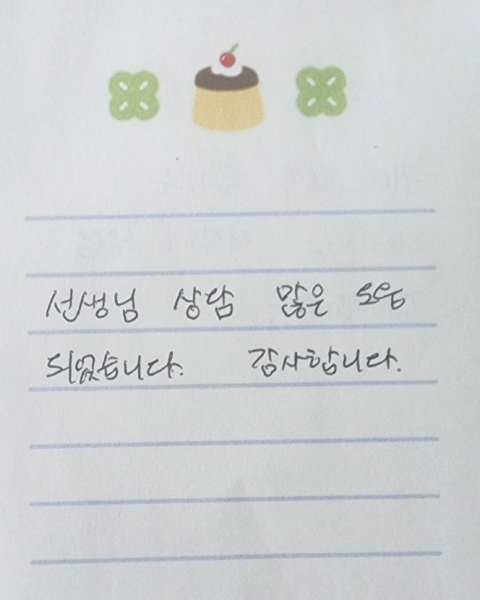 선생님 상담 많은 도움
되었습니다. 감사합니다.